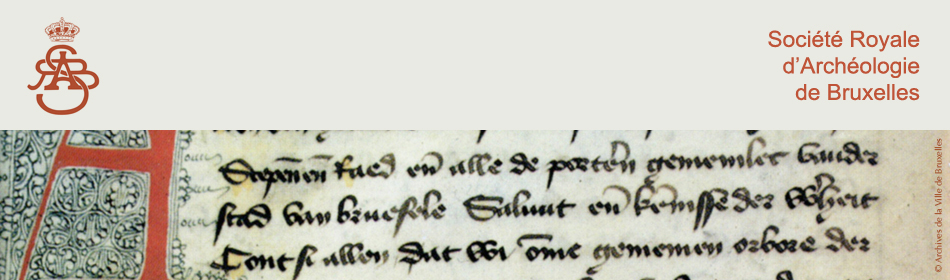 SRAB
Société Royale
d'Archéologie
de Bruxelles
Scepenen Raed en alle de porteren gemeinlec vander
stad van bruesele Saluut en kennisse der w'heit
Cont si allen dat wi ome gemeinen orbore der
© Archives de la Ville de Bruxelles